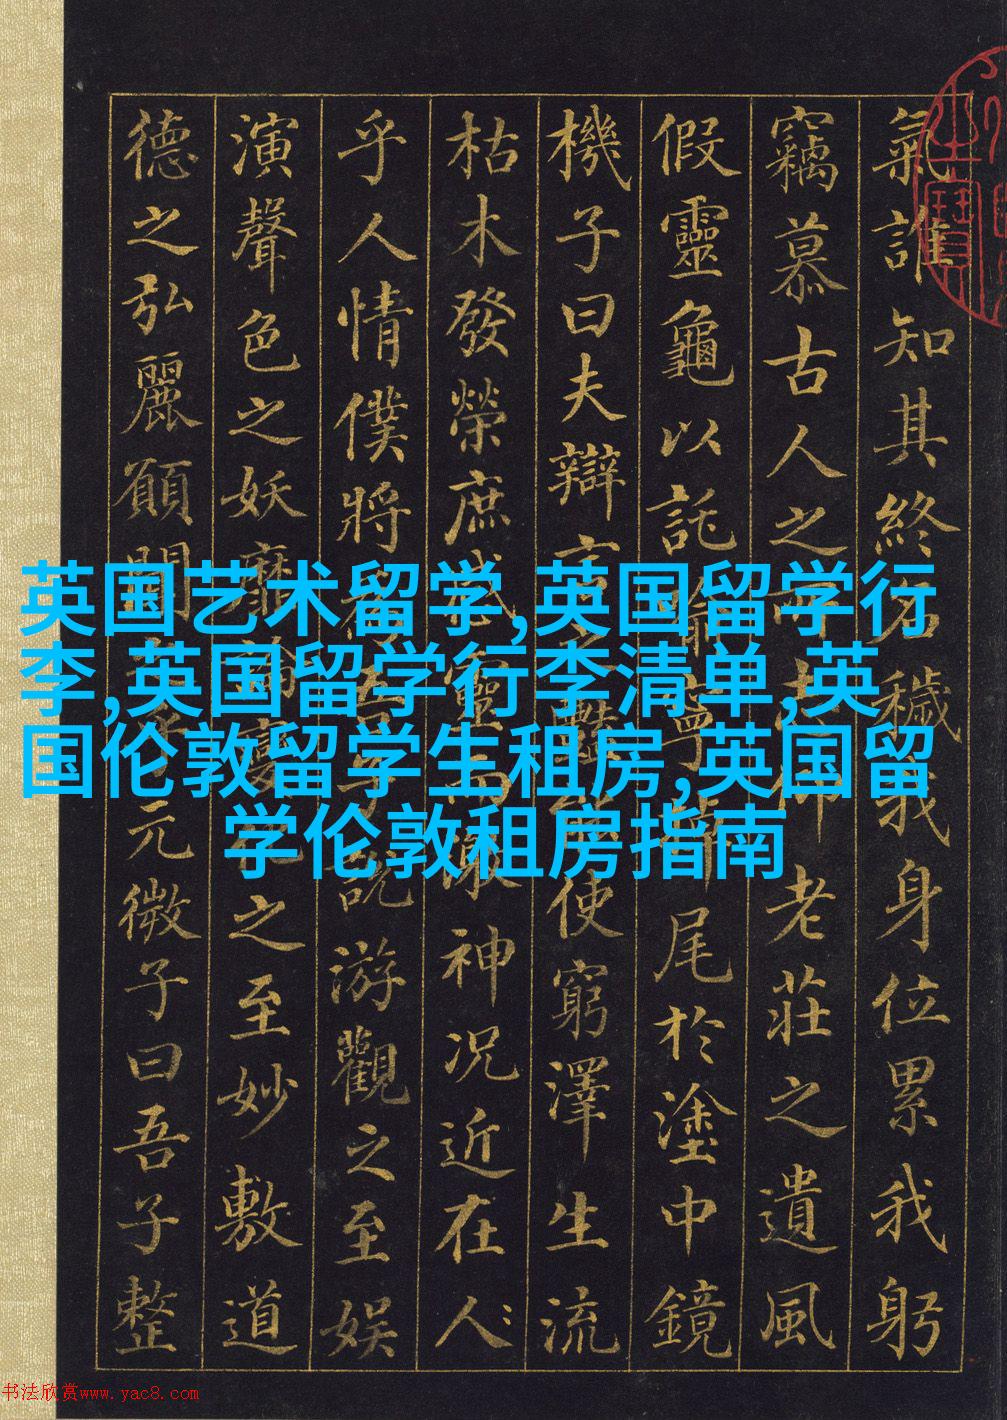 氣誰知其終名穢我身位累我躬
竊慕古人之所志仰老莊之遺風
假靈龜以託喻寧掉尾於塗中鏡
機子曰夫辯言之豔能使窮澤生流
枯木發榮庶感靈而激神況近在人
乎人情僕將為吾子說游觀之至娛
演聲色之妖靡論變化之至妙敷道
德之弘麗願聞之乎元微子曰吾子整
英国艺术留学,英国留学行
李,英国留学行李清单,英
国伦敦留学生租房,英国留
学伦敦租房指南
书法欣赏www.yac8.com